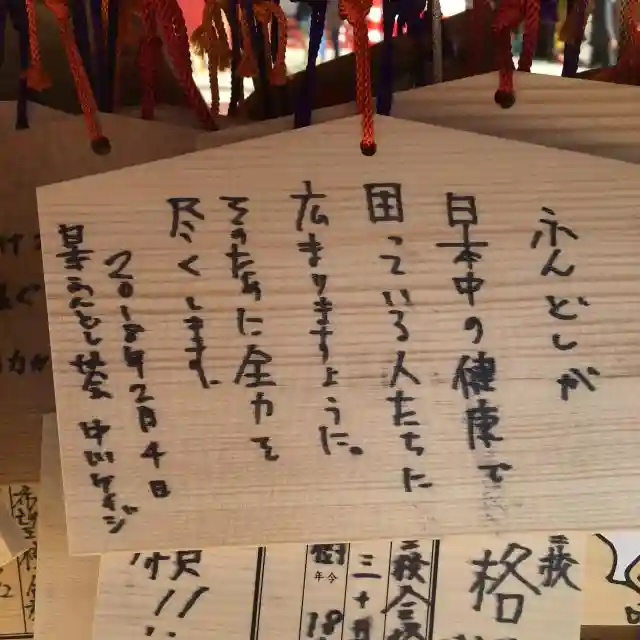 ふんどしが
日本中の健康で
困っている人たちに
広まりますように。
そのために全力を
尽くします。
2018年2月4日
日本ふんどし協会 中川ケイジ
合格
三校
18